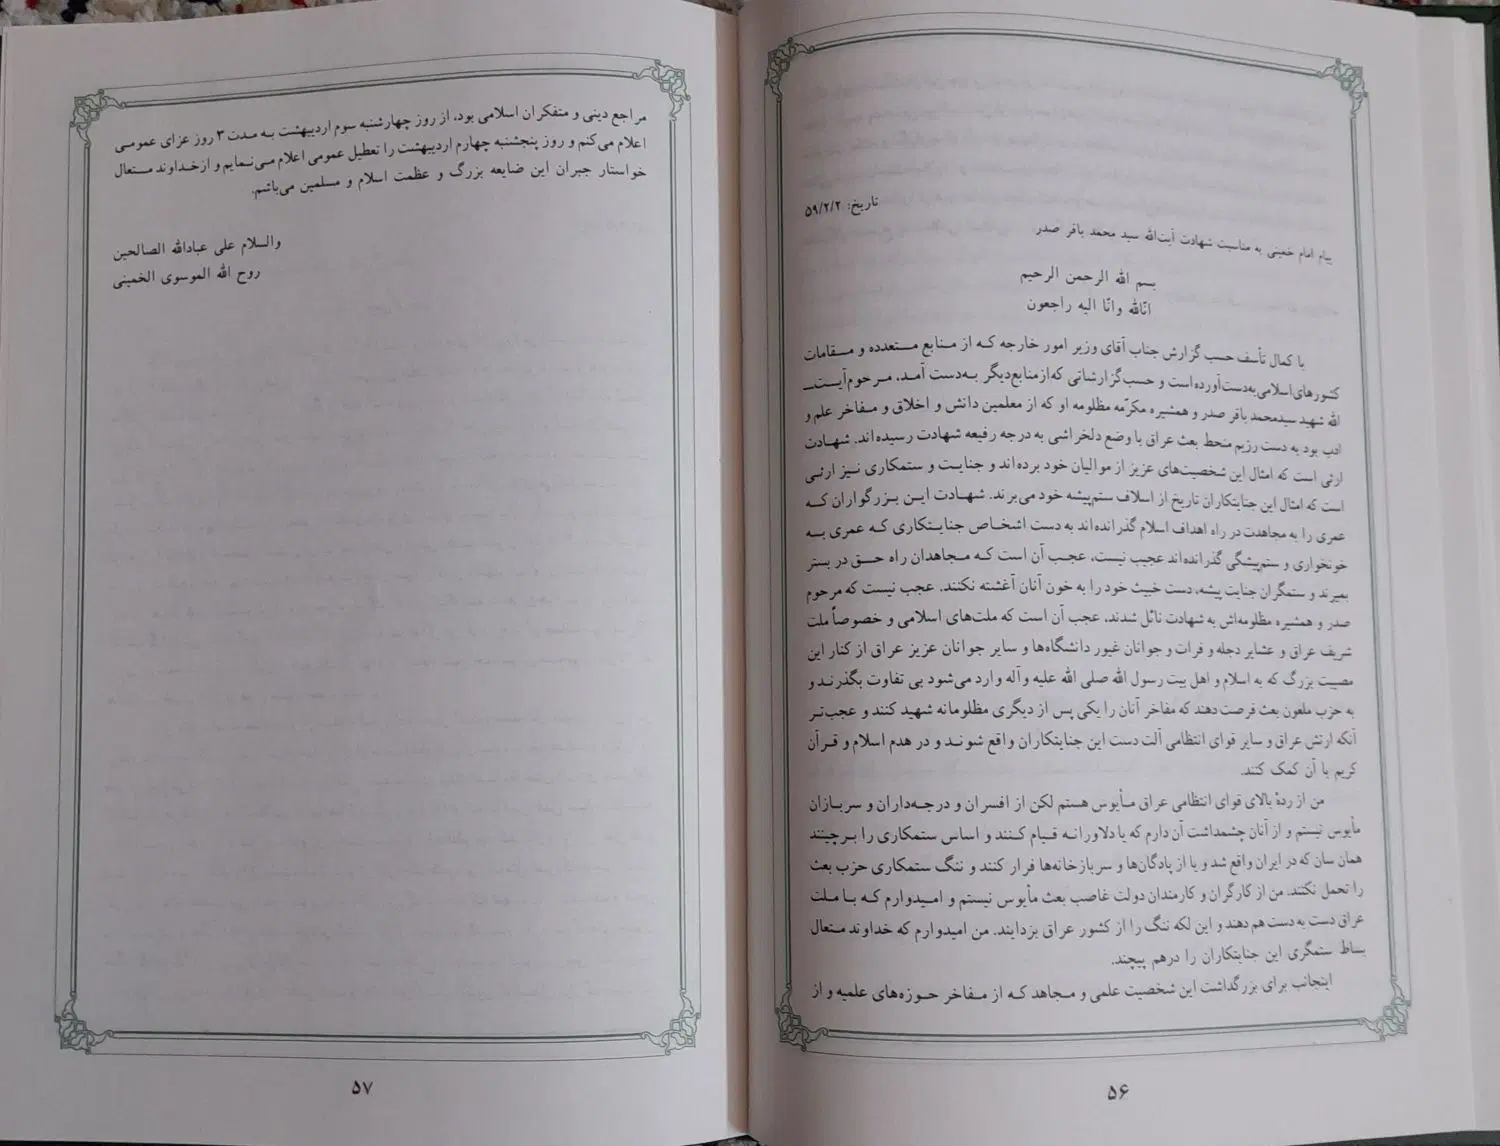 تاریخ: ۵۹/۲/۲
پیام امام خمینی به مناسبت شهادت آیت‌الله سید محمد باقر صدر
بسم الله الرحمن الرحیم
انّالله وانّا الیه راجعون
با کمال تأسف حسب گزارش جناب آقای وزیر امور خارجه که از منابع متعدده و مقامات
کشورهای اسلامی به‌دست آورده است و حسب گزارشاتی که از منابع دیگر به‌دست آمد، مرحوم آیت‌ـ
الله شهید سیدمحمد باقر صدر و همشیره مکرّمه مظلومه او که از معلمین دانش و اخلاق و مفاخر علم و
ادب بود به دست رژیم منحط بعث عراق با وضع دلخراشی به درجه رفیعه شهادت رسیده‌اند. شهادت
ارثی است که امثال این شخصیت‌های عزیز از موالیان خود برده‌اند و جنایت و ستمکاری نیز ارثی
است که امثال این جنایتکاران تاریخ از اسلاف ستم‌پیشه خود می‌برند. شهادت این بزرگواران که
عمری را به مجاهدت در راه اهداف اسلام گذرانده‌اند به دست اشخاص جنایتکاری که عمری به
خونخواری و ستم‌پیشگی گذرانده‌اند عجیب نیست، عجب آن است که مجاهدان راه حق در بستر
بمیرند و ستمگران جنایت پیشه، دست خبیث خود را به خون آنان آغشته نکنند. عجب نیست که مرحوم
صدر و همشیره مظلومه‌اش به شهادت نائل شدند، عجب آن است که ملت‌های اسلامی و خصوصاً ملت
شریف عراق و عشایر دجله و فرات و جوانان غیور دانشگاه‌ها و سایر جوانان عزیز عراق از کنار این
مصیبت بزرگ که به اسلام و اهل بیت رسول الله صلی الله علیه وآله وارد می‌شود بی تفاوت بگذرند و
به حزب ملعون بعث فرصت دهند که مفاخر آنان را یکی پس از دیگری مظلومانه شهید کنند و عجب‌تر
آنکه ارتش عراق و سایر قوای انتظامی آلت دست این جنایتکاران واقع شوند و در هدم اسلام و قرآن
کریم با آن کمک کنند.
من از ردهٔ بالای قوای انتظامی عراق مأیوس هستم لکن از افسران و درجه‌داران و سربازان
مأیوس نیستم و از آنان چشمداشت آن دارم که یا دلاورانه قیام کنند و اساس ستمکاری را برچینند
همان سان که در ایران واقع شد و یا از پادگان‌ها و سربازخانه‌ها فرار کنند و ننگ ستمکاری حزب بعث
را تحمل نکنند. من از کارگران و کارمندان دولت غاصب بعث مأیوس نیستم و امیدوارم که با ملت
عراق دست به دست هم دهند و این لکه ننگ را از کشور عراق بزدایند. من امیدوارم که خداوند متعال
بساط ستمگری این جنایتکاران را درهم پیچند.
اینجانب برای بزرگداشت این شخصیت علمی و مجاهد که از مفاخر حوزه‌های علمیه و از
۵۶
مراجع دینی و متفکران اسلامی بود، از روز چهارشنبه سوم اردیبهشت به مدت ۳ روز عزای عمومی
اعلام می‌کنم و روز پنجشنبه چهارم اردیبهشت را تعطیل عمومی اعلام می‌نمایم و از خداوند متعال
خواستار جبران این ضایعه بزرگ و عظمت اسلام و مسلمین می‌باشم.
والسلام علی عبادالله الصالحین
روح الله الموسوی الخمینی
۵۷